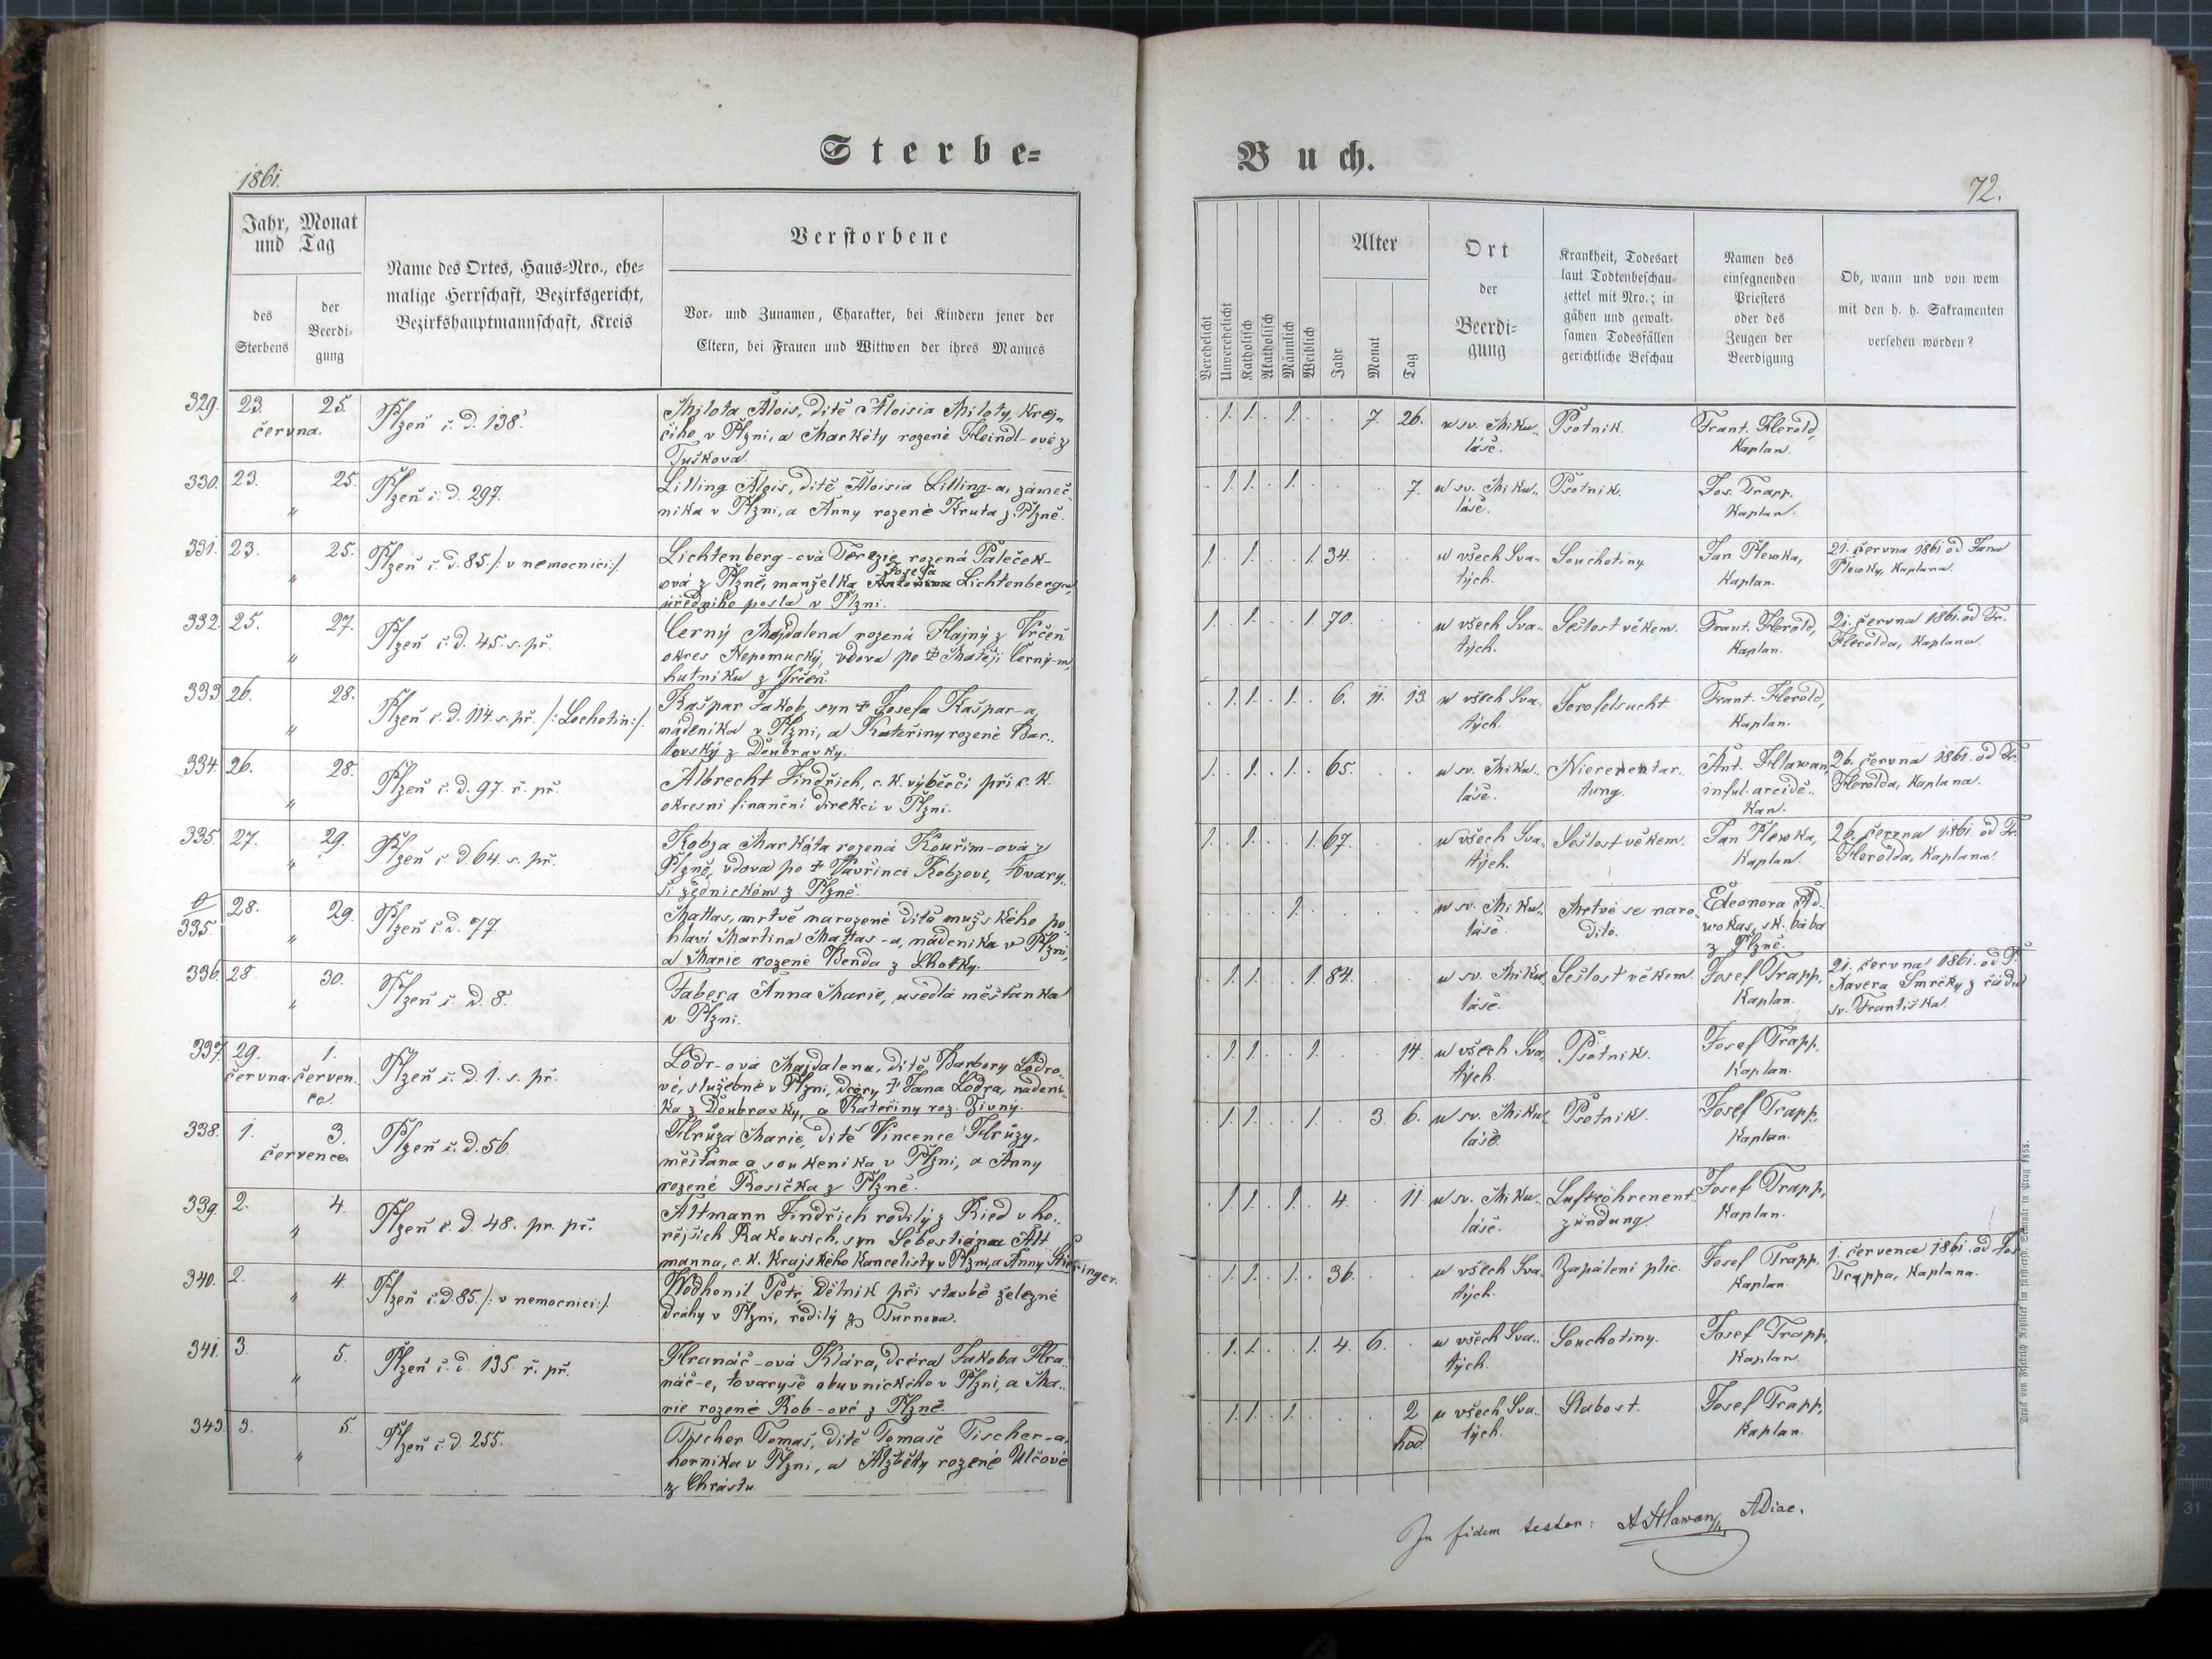 Sterbe=
1861.
Jahr, Monat
und Tag
des
Sterbens
der
Beerdi-
gung
Name des Ortes, Haus-Nro., ehe-
malige Herrschaft, Bezirksgericht,
Bezirkshauptmannschaft, Kreis
Verstorbene
Vor- und Zunamen, Charakter, bei Kindern jener der
Eltern, bei Frauen und Wittwen der ihres Mannes
329. 23. 25.
června.
Plzeň č. d. 138.
Milota Alois, dítě Aloisia Miloty, krej-
čího v Plzni, a Markéty rozené Heindl-ové z
Tuškova.
330. 23. 25.
"
Plzeň č. d. 297.
Lilling Alois, dítě Aloisia Lilling-a, zámeč-
níka v Plzni, a Anny rozené Kruta z Plzně.
331. 23. 25.
"
Plzeň č. d. 85 /: v nemocnici :/
Lichtenberg-ová Terezie rozená Paleček-
Josefa
ová z Plzně, manželka Antonína Lichtenberga,
úředního posla v Plzni.
332. 25. 27.
"
Plzeň č. d. 45. s. př.
Černý Majdalena rozená Hajný z Vrčeň
okres Nepomucký, vdova po † Matěji Černý-m
hutníku z Vrčeň.
333. 26. 28.
"
Plzeň č. d. 114. s. př. /: Lochotín :/.
Kašpar Jakob, syn † Josefa Kašpar-a,
nádeníka v Plzni, a Kateřiny rozené Bar-
tovský z Doubravky.
334. 26. 28.
"
Plzeň č. d. 97. ř. př.
Albrecht Jindřich, c. k. výběrčí při c. k.
okresní finanční direkci v Plzni.
335. 27. 29.
"
Plzeň č. d. 64. s. př.
Kobza Markéta rozená Kouřim-ová z
Plzně, vdova po † Vavřinci Kobzovi, tovary-
ši zednickém z Plzně.
335. 28. 29.
"
Plzeň č. d. 77.
Mattas, mrtvě narozené dítě mužského po-
hlaví Martina Mattas-a, nádeníka v Plzni,
a Marie rozené Benda z Lhotky.
336. 28. 30.
"
Plzeň č. d. 8.
Tabera Anna Marie, usedlá měšťanka
v Plzni.
337. 29. 1.
června. červen-
ce.
Plzeň č. d. 1. s. př.
Lodr-ová Majdalena, dítě Barbory Lodro-
vé, služebné v Plzni, dcery † Jana Lodra, nádení-
ka z Doubravky, a Kateřiny roz. Živný.
338. 1. 3.
července.
Plzeň č. d. 56.
Hrůza Marie, dítě Vincence Hrůzy,
měšťana a soukeníka v Plzni, a Anny
rozené Rosička z Plzně.
339. 2. 4.
"
Plzeň č. d. 48. pr. př.
Altmann Jindřich rodilý z Ried v ho-
rejších Rakousích, syn Sebestiána Alt
manna, c. k. krajského kancelisty v Plzni, a Anny
340. 2. 4.
"
Plzeň č. d. 85. /: v nemocnici :/.
Wodhonil Petr, dělník při stavbě železné
dráhy v Plzni, rodilý z Turnova.
341. 3. 5.
"
Plzeň č. d. 135. ř. př.
Hranáč-ová Klára, dcéra Jakoba Hra-
náč-e, tovaryše obuvnického v Plzni, a Ma-
rie rozené Rob-ové z Plzně.
343. 3. 5.
"
Plzeň č. d. 255.
Tischer Tomáš, dítě Tomáše Tischer-a,
horníka v Plzni, a Alžběty rozené Ulčové
z Chrástu.
Buch.
72.
Verehelicht
Unverehelicht
Katholisch
Akatholisch
Männlich
Weiblich
Alter
Jahr
Monat
Tag
Ort
der
Beerdi-
gung
Krankheit, Todesart
laut Todtenbeschau-
zettel mit Nro.; in
gähen und gewalt-
samen Todesfällen
gerichtliche Beschau
Namen des
einsegnenden
Priesters
oder des
Zeugen der
Beerdigung
Ob, wann und von wem
mit den h. h. Sakramenten
versehen worden?
. 1. 1. . 1. . . 7. 26.
u sv. Miku-
láše.
Psotník.
Frant. Herold,
Kaplan.
. 1. 1. . 1. . . . 7.
u sv. Miku-
láše.
Psotník.
Jos. Trapp,
Kaplan.
1. . 1. . . 1. 34. . .
u všech Sva-
tých.
Souchotiny.
Jan Plewka,
Kaplan.
21. června 1861 od Jana
Plewky, Kaplana.
1. . 1. . . 1. 70. . .
u všech Sva-
tých.
Sešlost věkem.
Frant. Herold,
Kaplan.
21. června 1861. od Fr.
Herolda, Kaplana.
. 1. 1. . 1. . 6. 11. 13.
u všech Sva-
tých.
Scrofelsucht
Frant. Herold,
Kaplan.
1. . 1. . 1. . 65. . .
u sv. Miku-
láše.
Nierenentar-
tung.
Ant. Hlawan,
inful. arcidě-
kan.
26. června 1861. od Fr.
Herolda, Kaplana.
1. . 1. . . 1. 67. . .
u všech Sva-
tých.
Sešlost věkem.
Jan Plewka,
Kaplan.
26. června 1861. od Fr.
Herolda, Kaplana.
. . . . 1. . . . .
u sv. Miku-
láše.
Mrtvé se naro-
dilo.
Eleonora Ad-
wokas, sk. bába
z Plzně.
. 1. 1. . . 1. 84. . .
u sv. Miku-
láše.
Sešlost věkem.
Josef Trapp,
Kaplan.
21. června 1861. od P.
Xavera Smrčky z řádu
sv. Františka.
. 1. 1. . . 1. . . 14.
u všech Sva-
tých.
Psotník.
Josef Trapp,
Kaplan.
. 1. 1. . . 1. . 3. 6.
u sv. Miku-
láše.
Psotník.
Josef Trapp,
Kaplan.
. 1. 1. . 1. . 4. . 11.
u sv. Miku-
láše.
Luftröhrenent-
zündung.
Josef Trapp,
Kaplan.
. 1. 1. . 1. . 36. . .
u všech Sva-
tých.
Zapálení plic.
Josef Trapp.
Kaplan.
1. července 1861. od Jos.
Trappa, Kaplana.
. 1. 1. . . 1. 4. 6. .
u všech Sva-
tých.
Souchotiny.
Josef Trapp,
Kaplan.
. 1. 1. . 1. . . . 2
hod.
u všech Sva-
tých.
Slabost.
Josef Trapp,
Kaplan.
In fidem testor: A Hlawan ADiac.
Druck von Friedrich Rohliček im fürsterzb. Seminär in Prag 1858.